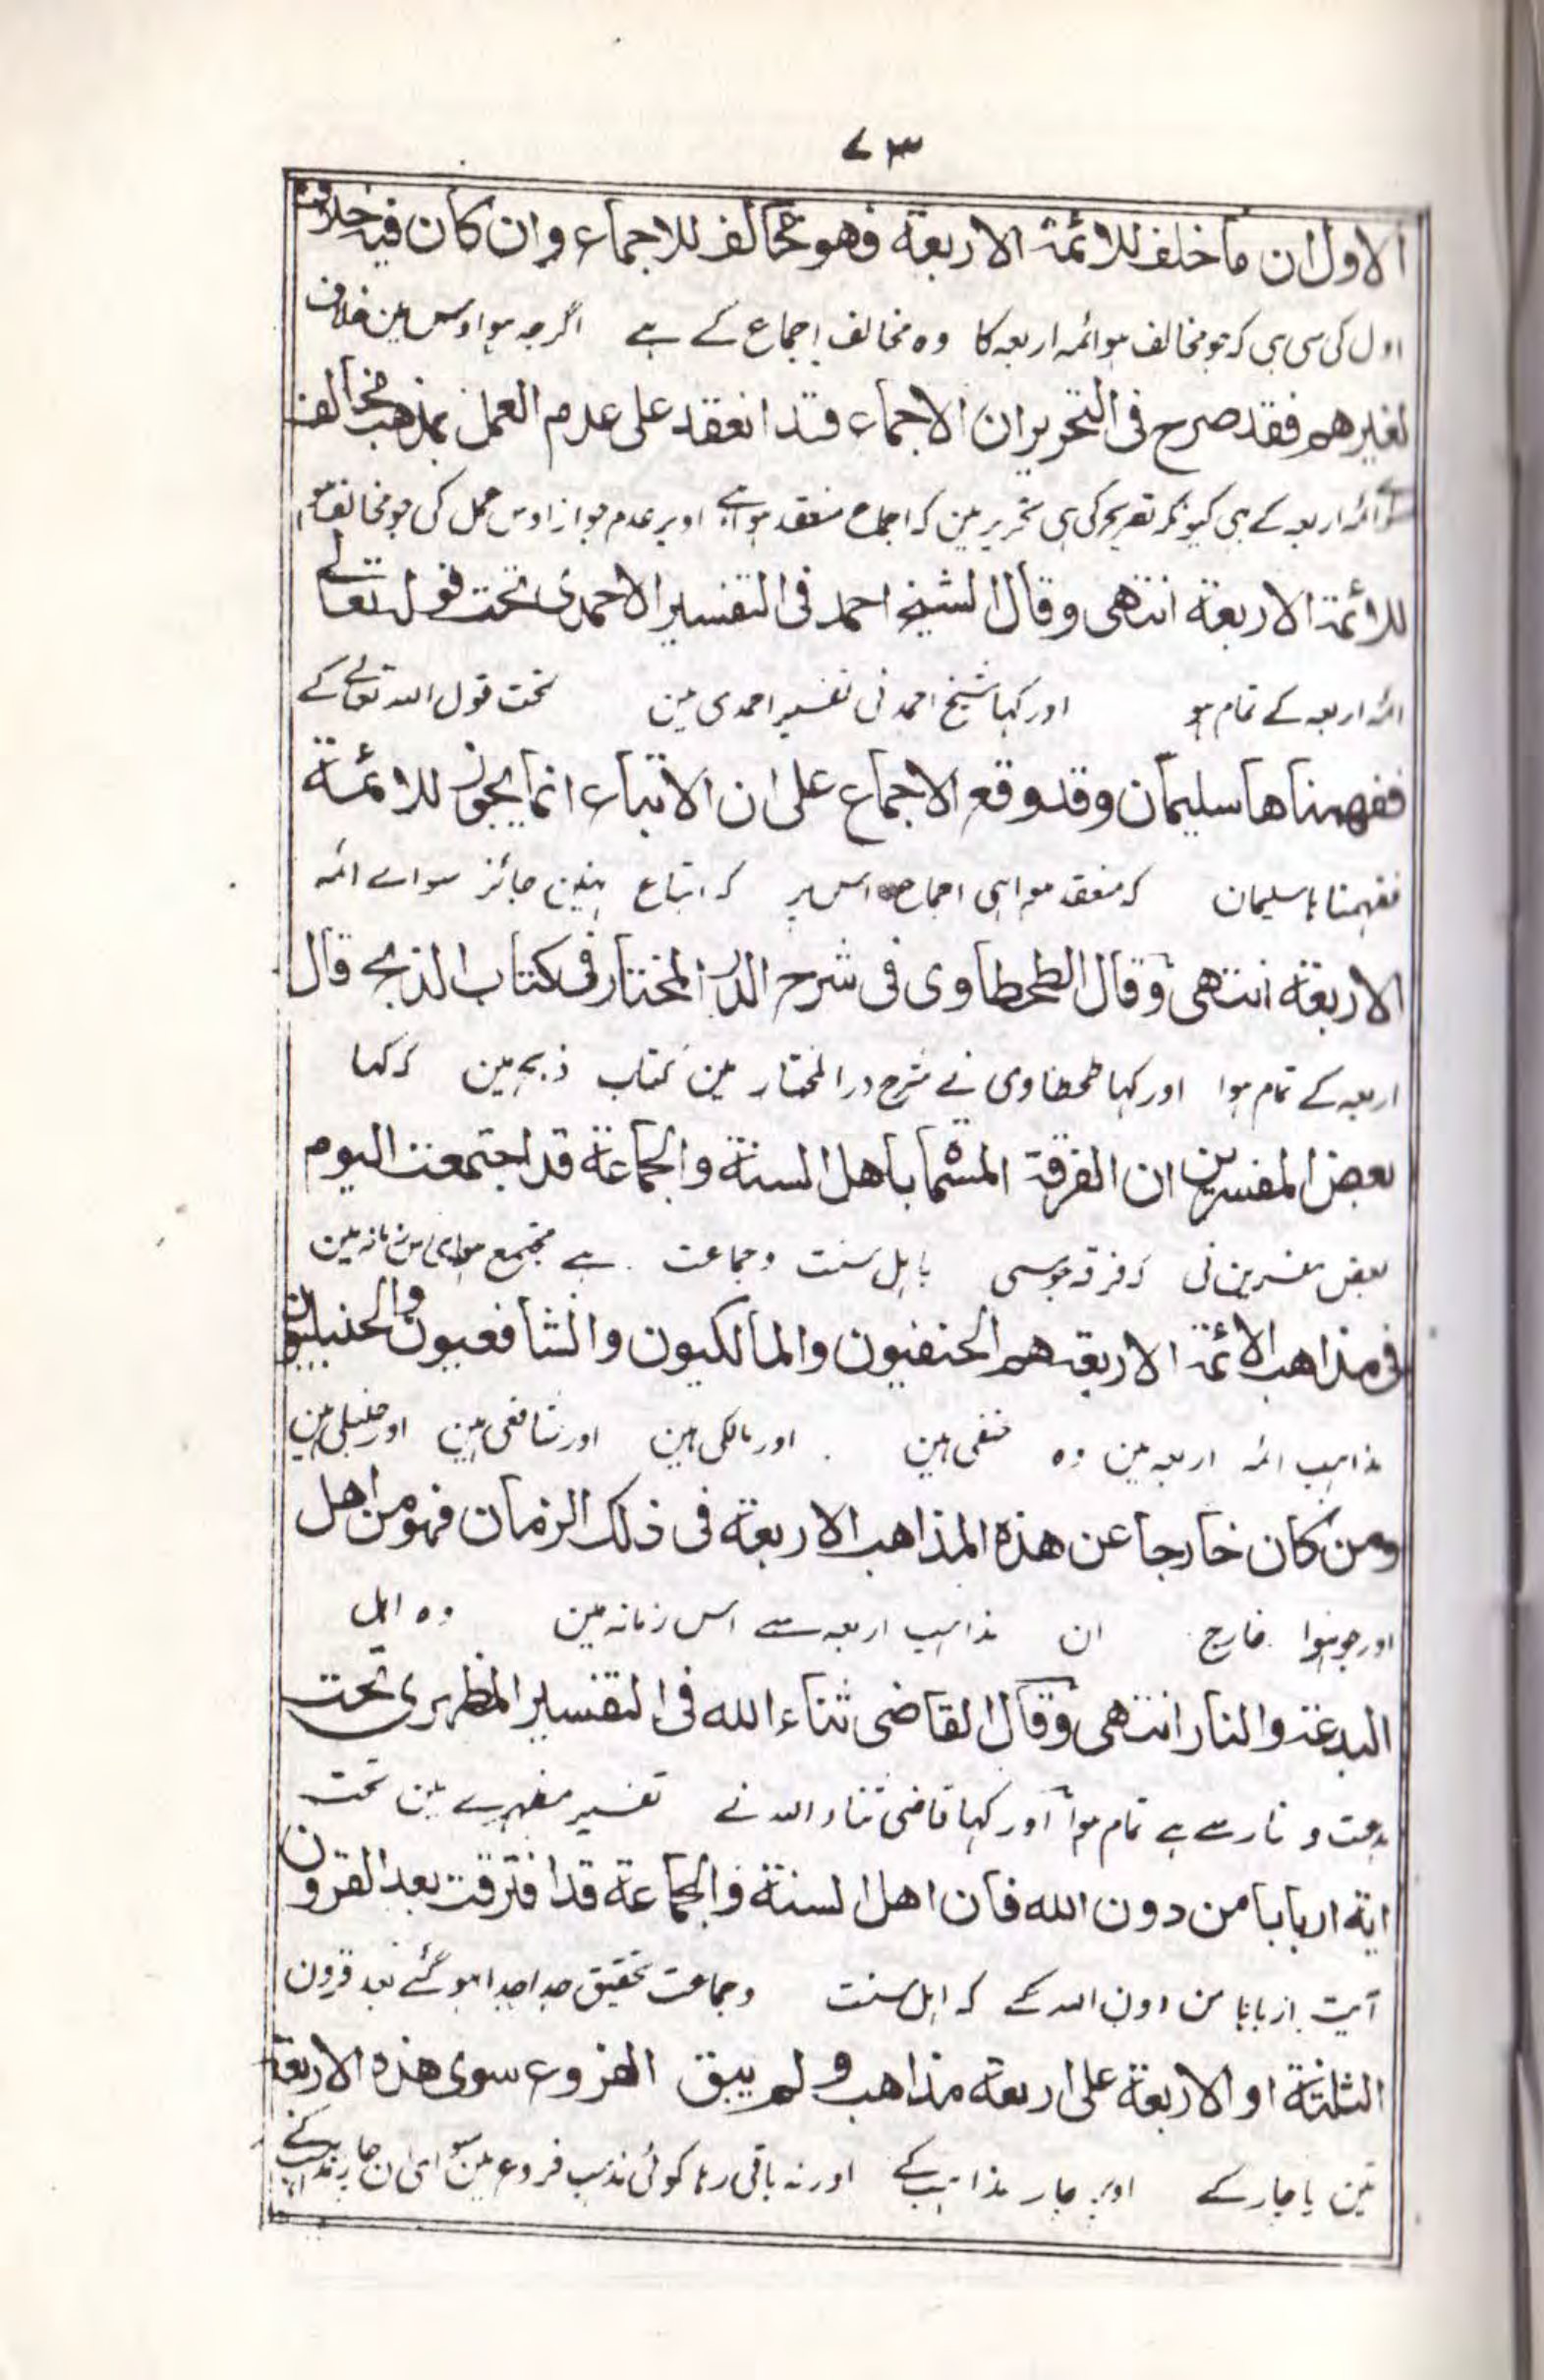 ۷۳
الاول ان ما خلف للائمة الاربعة فهو مخالف للاجماع وان كان فيه خلاف
اول کی سی ہی کہ جو مخالف ہو ائمہ اربعہ کا وہ مخالف اجماع کے ہے اگرچہ ہو اوس مین خلاف
لغيرهم فقد صرح فى التحرير ان الاجماع قد انعقد على عدم العمل بمذهب مخالف
ائمہ اربعہ کے ہی کیونکر تصریح کی ہی تحریر مین کہ اجماع منعقد ہوا ہے اوپر عدم جواز اوس عمل کی جو مخالف
للائمة الاربعة انتهى وقال الشيخ احمد فى التفسير الاحمدى تحت قوله تعالے
ائمہ اربعہ کے تمام ہو اور کہا شیخ احمد نی تفسیر احمدی مین تحت قول اللہ تعالے کے
ففهمناها سليمان وقد وقع الاجماع على ان الاتباع انما يجوز للائمة
ففہمنا ہا سلیمان کہ منعقد ہوا ہی اجماع اس پر کہ اتباع نہین جائز سواے ائمہ
الاربعة انتهى وقال الطحطاوى فى شرح الدر المختار فى كتاب الذبح قال
اربعہ کے تمام ہوا اور کہا طحطاوی نے شرح در المختار مین کتاب ذبح مین کہ کہا
بعض المفسرين ان الفرقة المسماة باهل السنة والجماعة قد اجتمعت اليوم
بعض مفسرین نی کہ فرقہ جو مسمی باہل سنت وجماعت ہے مجتمع ہوا ہی اس زمانہ مین
فى مذاهب الائمة الاربعة هم الحنفيون والمالكيون والشافعيون والحنبليون
مذاہب ائمہ اربعہ مین وہ حنفی ہین اور مالکی ہین اور شافعی ہین اور حنبلی ہین
ومن كان خارجا عن هذه المذاهب الاربعة فى ذلك الزمان فهو من اهل
اور جو ہوا خارج ان مذاہب اربعہ سے اس زمانہ مین وہ اہل
البدعة والنار انتهى وقال القاضى ثناء الله فى التفسير المظهرى تحت
بدعت و نار سے ہے تمام ہوا اور کہا قاضی ثناء اللہ نے تفسیر مظہرے مین تحت
اية اربابا من دون الله فان اهل السنة والجماعة قد افترقت بعد القرون
آیت اربابا من دون اللہ کے کہ اہل سنت وجماعت تحقیق جدا جدا ہو گئے بعد قرون
الثلثة او الاربعة على اربعة مذاهب ولم يبق الفروع سوى هذه الاربعة
تین یا چار کے اوپر چار مذاہب کے اور نہ باقی رہا کوئی مذہب فروع مین سوای ان چار مذہب کے